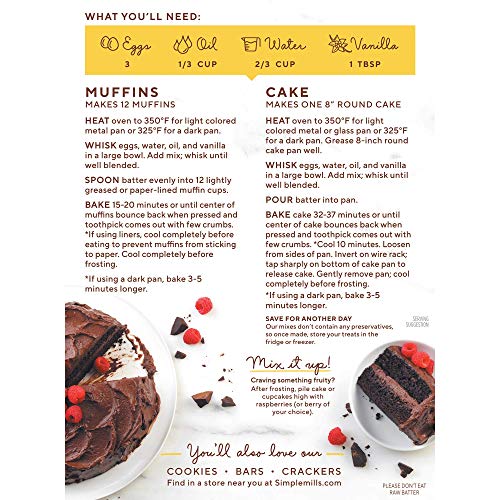 WHAT YOU'LL NEED:
Eggs
3
Oil
1/3 CUP
Water
2/3 CUP
Vanilla
1 TBSP
MUFFINS
MAKES 12 MUFFINS
HEAT oven to 350°F for light colored
metal pan or 325°F for a dark pan.
WHISK eggs, water, oil, and vanilla
in a large bowl. Add mix; whisk until
well blended.
SPOON batter evenly into 12 lightly
greased or paper-lined muffin cups.
BAKE 15-20 minutes or until center of
muffins bounce back when pressed and
toothpick comes out with few crumbs.
*If using liners, cool completely before
eating to prevent muffins from sticking
to paper. Cool completely before
frosting.
*If using a dark pan, bake 3-5
minutes longer.
CAKE
MAKES ONE 8" ROUND CAKE
HEAT oven to 350°F for light
colored metal or glass pan or 325°F
for a dark pan. Grease 8-inch round
cake pan well.
WHISK eggs, water, oil, and vanilla
in a large bowl. Add mix; whisk until
well blended.
POUR batter into pan.
BAKE cake 32-37 minutes or until
center of cake bounces back when
pressed and toothpick comes out with
few crumbs. *Cool 10 minutes. Loosen
from sides of pan. Invert on wire rack;
tap sharply on bottom of cake pan to
release cake. Gently remove pan; cool
completely before frosting.
*If using a dark pan, bake 3-5
minutes longer.
SAVE FOR ANOTHER DAY
Our mixes don't contain any preservatives,
so once made, store your treats in the
fridge or freezer.
SERVING
SUGGESTION
Mix it up!
Craving something fruity?
After frosting, pile cake or
cupcakes high with
raspberries (or berry of
your choice).
You'll also love our
COOKIES • BARS • CRACKERS
Find in a store near you at Simplemills.com
PLEASE DON'T EAT
RAW BATTER.